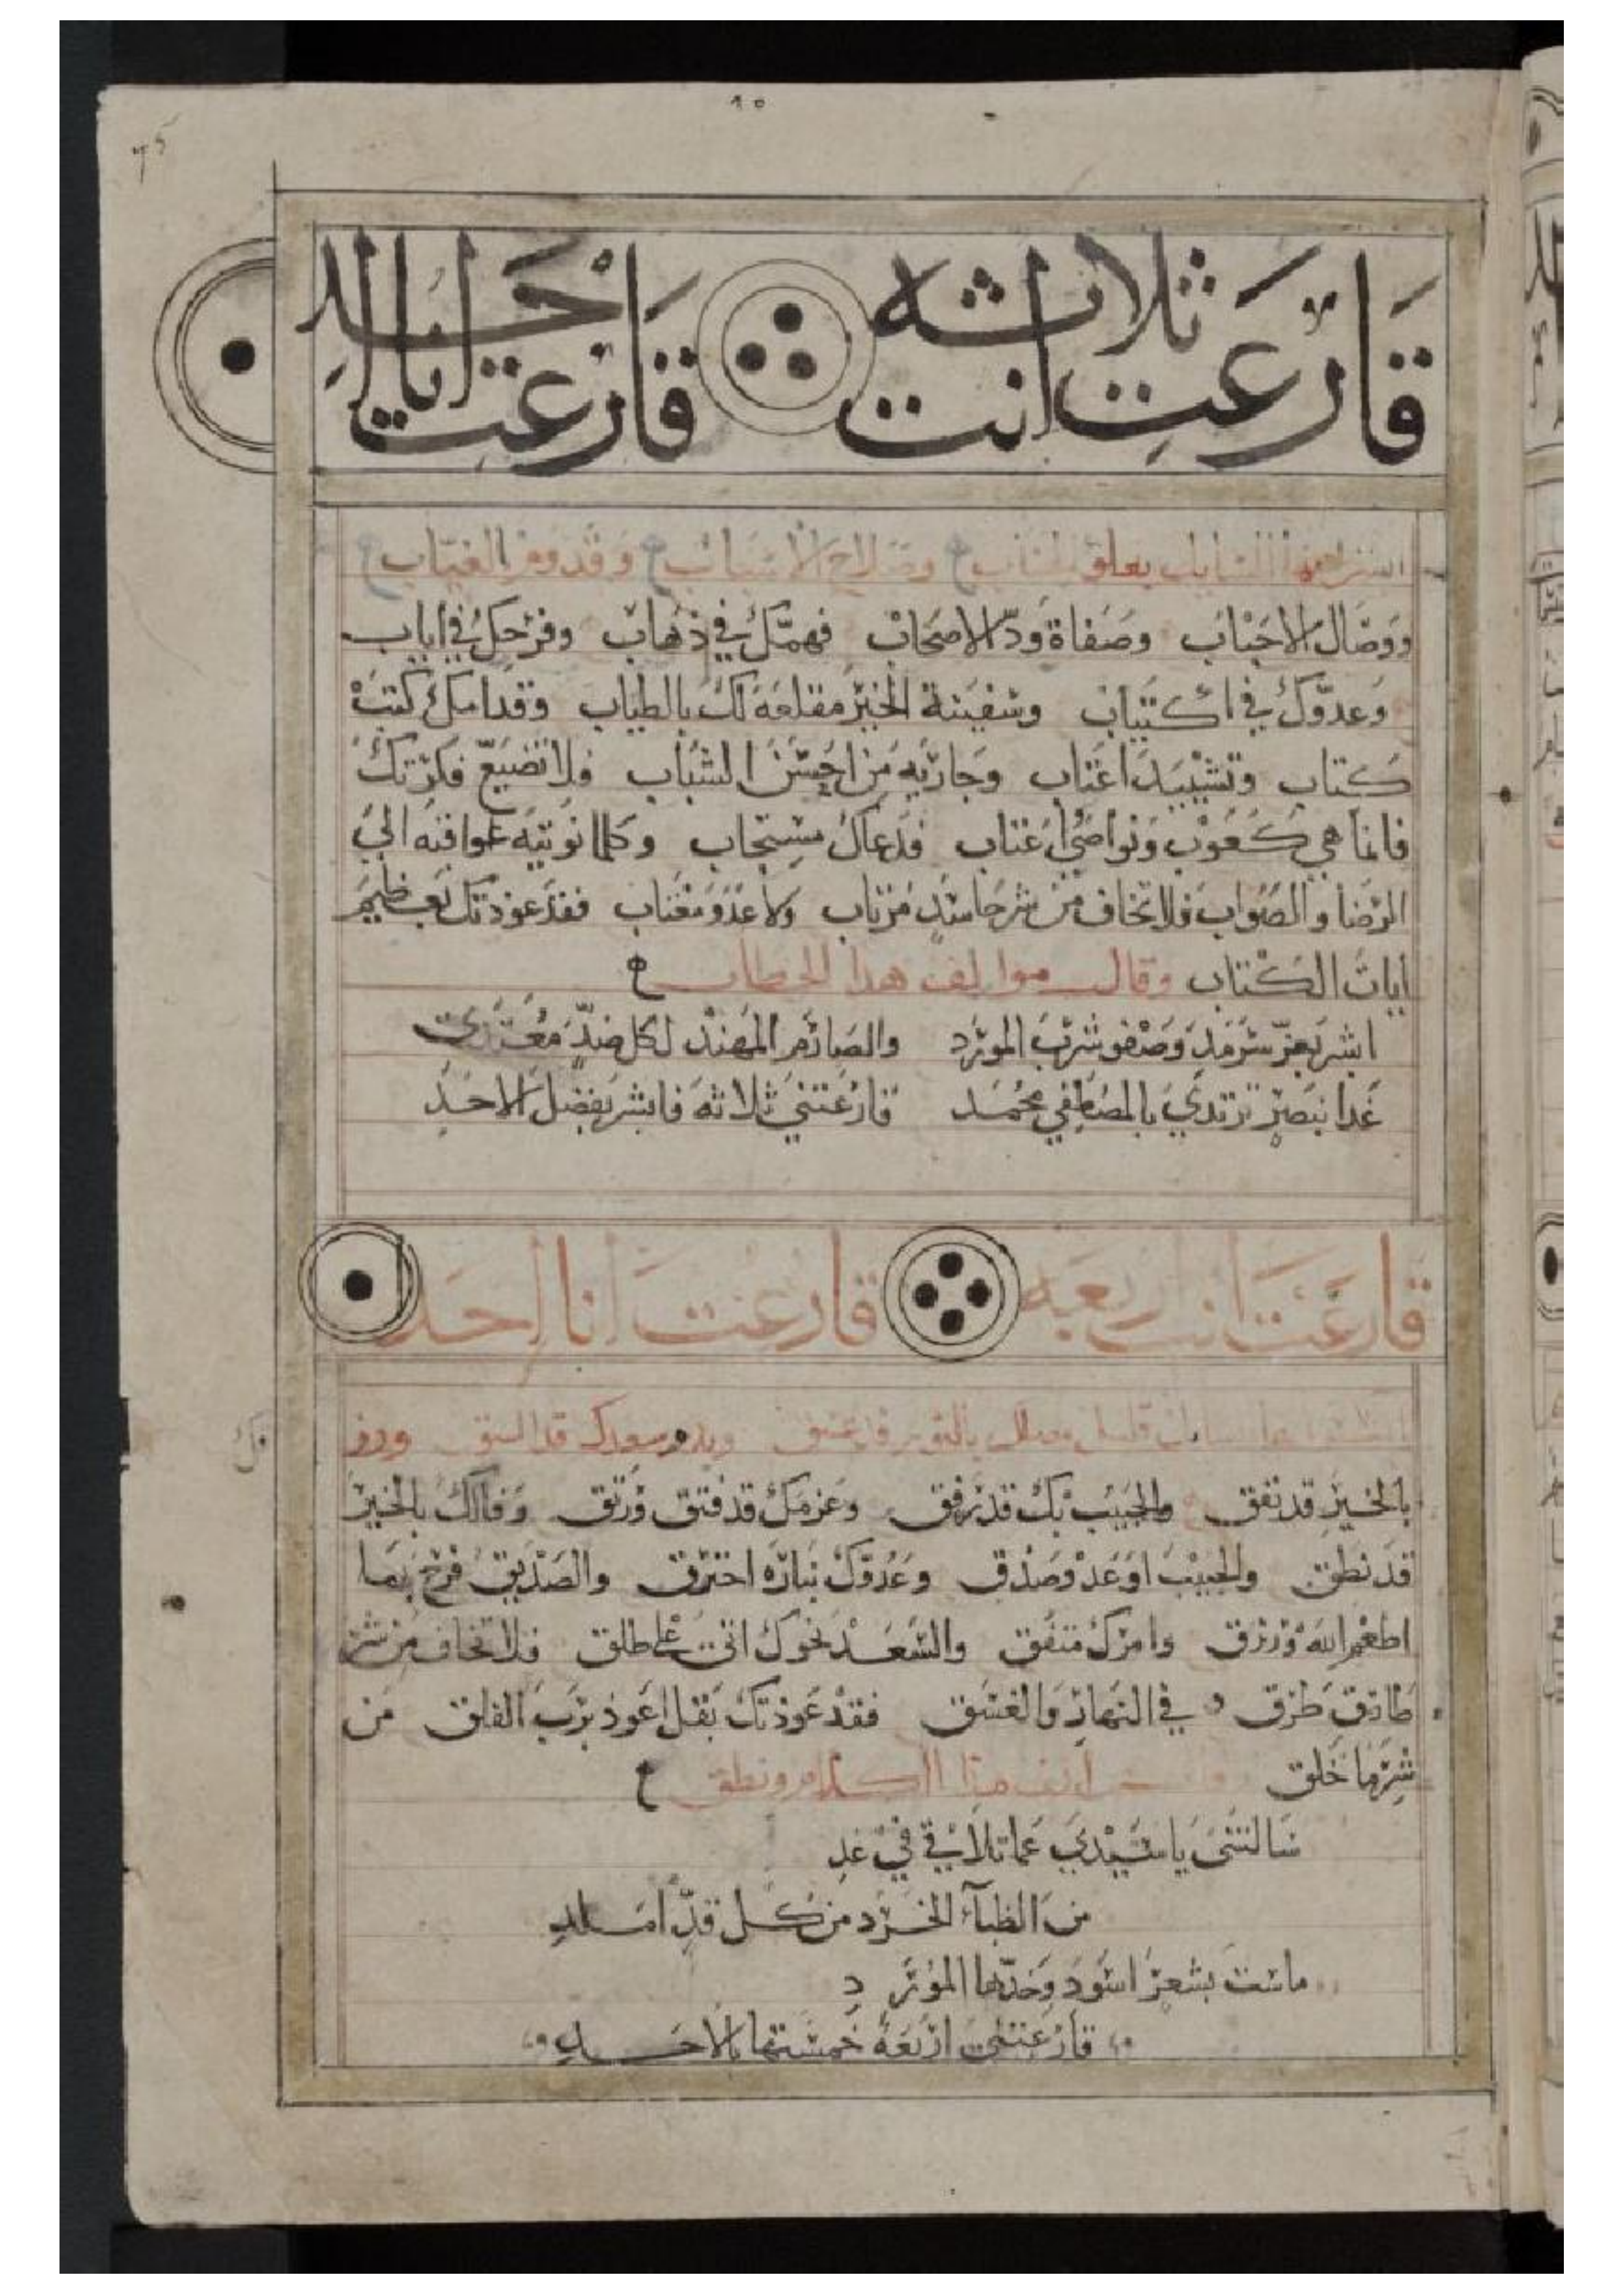 ٦٥
قارعت انت ثلاثه قارعت انا احد
ابشر ايها السايل بعلو الجناب وصلاح الاسباب وقدوم الغياب
ووصال الاحباب وصفاة ودّ الاصحاب فهمّك في ذهاب وفرحك في اياب
وعدوّك في اكتياب وسفينة الخير مقلعة لك بالطياب وقدامك كتب
كتاب وتشييد اعتاب وجاريه من احسن الشباب فلا تضيّع فكرتك
فانما هي كعوب ونواصي اعتاب فدعاك مستجاب وكلما نويته عواقبه الى
الرضا والصواب فلا تخاف من شر حاسد مرتاب ولا عدو مغتاب فقد عوذتك بعظيم
ايات الكتاب وقال موالف هذا الخطاب
ابشر بعزّ سرمد وصفو شرب المورد والصارم المهند لكل ضدّ معتدي
غدا بنصر ترتدي بالمصطفي محمد قارعتني ثلاثة فابشر بفضل الاحد
قارعت انت اربعه قارعت انا احد
ايها السايل قارعتني وبدر سعدك قد ورزق
بالخير قد نفق والحبيب بك قد رفق وعزمك قد فتق ورتق وفالك بالخير
قد نطق والحبيب اوعد وصدق وعدوّك بناره احترق والصديق فرح بما
اطعم الله ورزق وامرك متفق والسعد نحوك اتي علي طلق فلا تخاف من شر
طارق طرق في النهار والغسق فقد عوذتك بقل اعوذ برب الفلق من
شر ما خلق وقال مولف هذا الكلام ونطق
سالتني يا سيدي عما تلاقي في غد
من الظبآء الخرّد من كل قدّ املد
ماست بشعر اسود وخدّها المورّد
قارعتني اربعة خمستها بالاحد